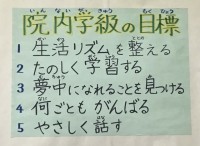 院内学級の目標
1 生活リズムを整える
2 たのしく学習する
3 夢中になれることを見つける
4 何ごともがんばる
5 やさしく話す